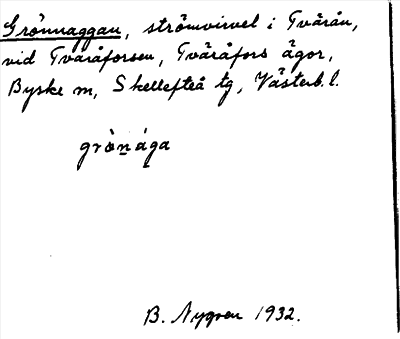 Grönnaggan, strömvirvel i Tvärån,
vid Tväråforsen, Tväråfors ägor,
Byske sn, Skellefteå tg, Västerb. l.
grònága
B. Nygren 1932.